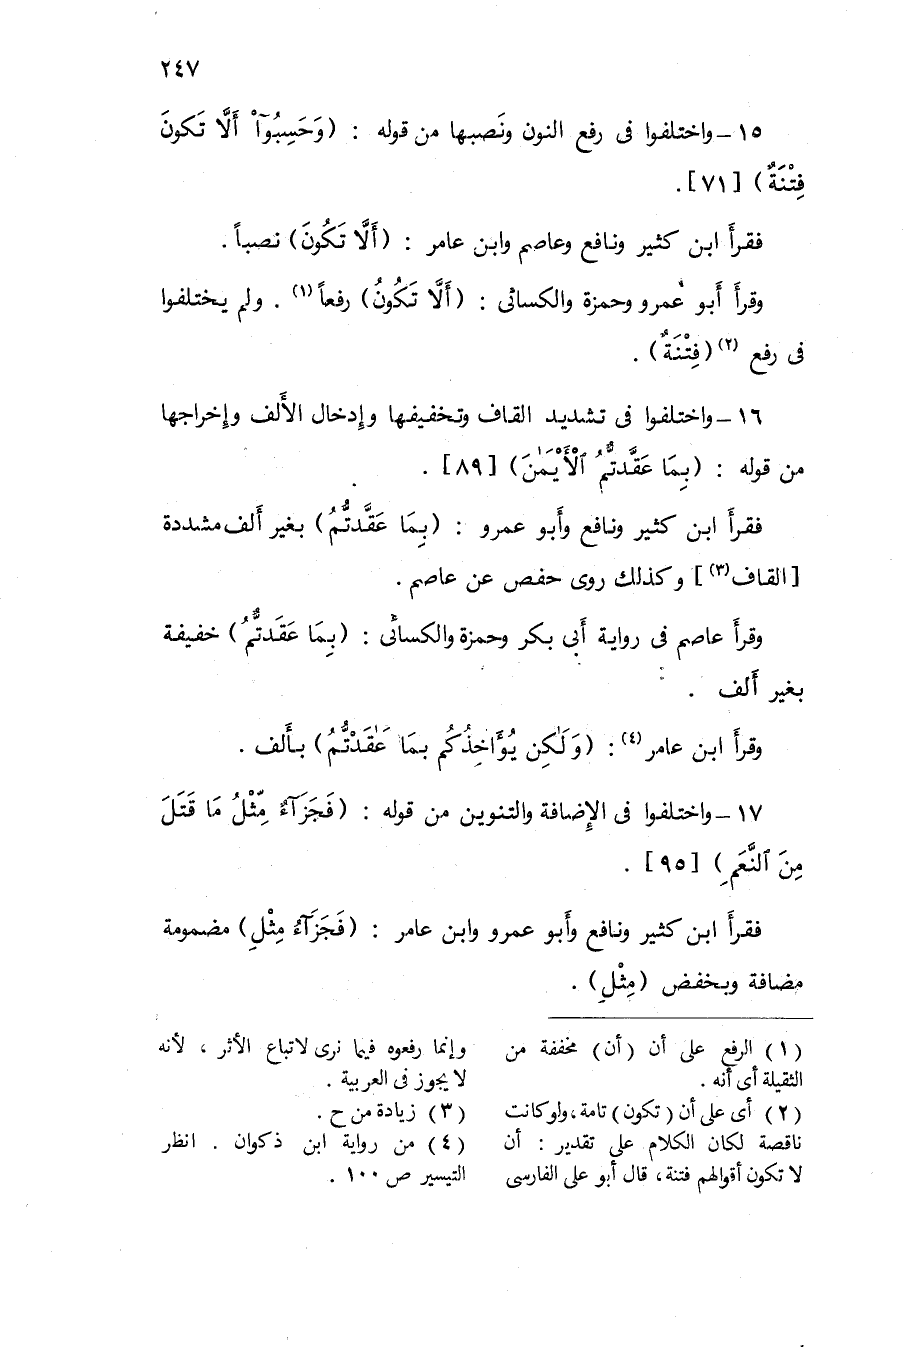 ٢٤٧
١٥ – واختلفوا فى رفع النون ونَصبها من قوله : (وَحَسِبُوٓاْ أَلَّا تَكُونَ
فِتْنَةٌ) [٧١].
فقرأَ ابن كثير ونافع وعاصم وابن عامر : (أَلَّا تَكُونَ) نصباً .
وقرأَ أَبو عمرو وحمزة والكسائى : (أَلَّا تَكُونُ) رفعاً(١) . ولم يختلفوا
فى رفع (٢) (فِتْنَةٌ) .
١٦ – واختلفوا فى تشديد القاف وتخفيفها وإِدخال الأَلف وإِخراجها
من قوله : (بِمَا عَقَّدتُّمُ ٱلْأَيْمَٰنَ) [٨٩] .
فقرأَ ابن كثير ونافع وأَبو عمرو : (بِمَا عَقَّدتُّمُ) بغير أَلف مشددة
[القاف(٣)] وكذلك روى حفص عن عاصم .
وقرأَ عاصم فى رواية أَبى بكر وحمزة والكسائى : (بِمَا عَقَدتُّمُ) خفيفة
بغير أَلف .
وقرأَ ابن عامر(٤) : (وَلَٰكِن يُؤَاخِذُكُم بِمَا عَٰقَدْتُّمُ) بأَلف .
١٧ – واختلفوا فى الإِضافة والتنوين من قوله : (فَجَزَآءٌ مِّثْلُ مَا قَتَلَ
مِنَ ٱلنَّعَمِ) [٩٥] .
فقرأَ ابن كثير ونافع وأَبو عمرو وابن عامر : (فَجَزَآءُ مِثْلِ) مضمومة
مضافة وبخفض (مِثْلِ) .
(١) الرفع على أن (أن) مخففة من
الثقيلة أى أنه .
(٢) أى على أن (تكون) تامة، ولو كانت
ناقصة لكان الكلام على تقدير : أن
لا تكون أقوالهم فتنة، قال أبو على الفارسى
وإنما رفعوه فيما نرى لاتباع الأثر ، لأنه
لا يجوز فى العربية .
(٣) زيادة من ح .
(٤) من رواية ابن ذكوان . انظر
التيسير ص ١٠٠ .